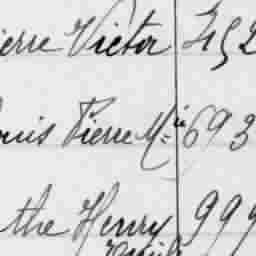 ierre Victor 452
ouis Pierre M.ie 693
the Henry 999